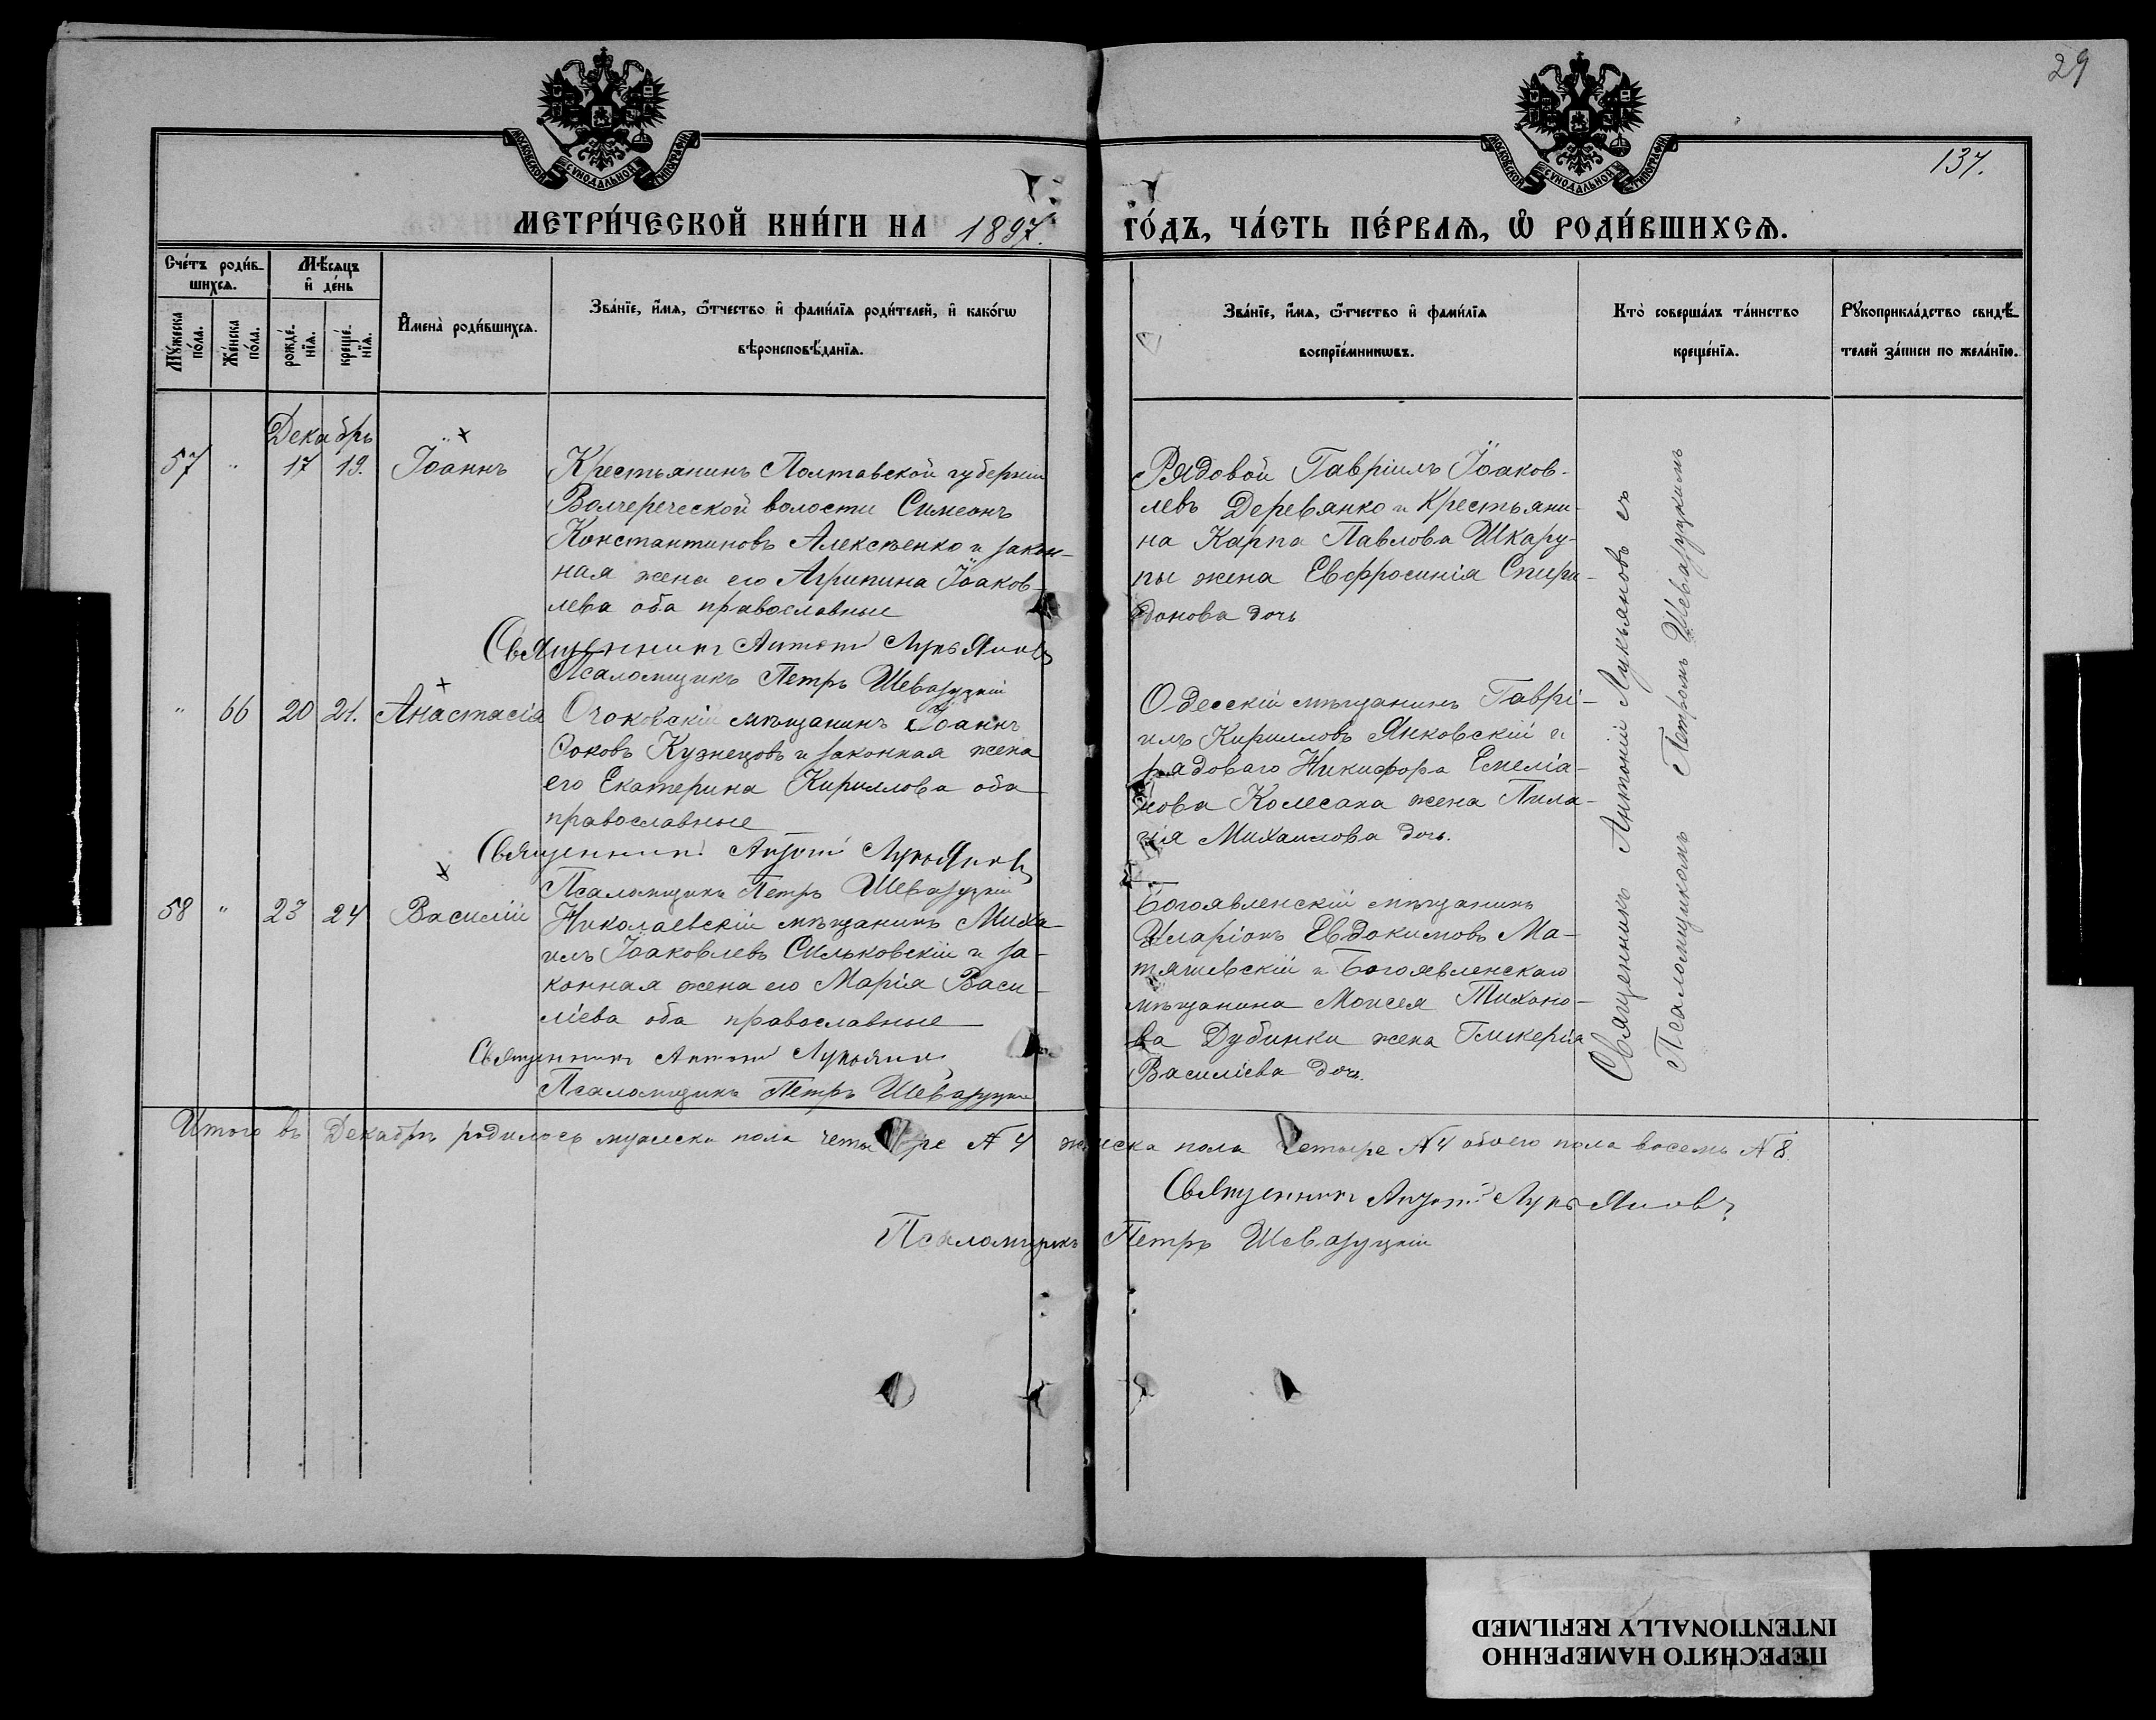 29
137.
МОСКОВСКОЙ СУНОДАЛЬНОЙ ТИПОГРАФІИ
МОСКОВСКОЙ СУНОДАЛЬНОЙ ТИПОГРАФІИ
МЕТРИ́ЧЕСКОЙ КНИ́ГИ НА 1897. ГО́ДЪ, ЧА́СТЬ ПЕ́РВАѦ, Ѿ РОДИ́ВШИХСѦ.
Сче́тъ роди́в-
шихсѧ.
Мꙋ́жеска по́ла.
Же́нска по́ла.
Мѣ́сѧцъ
и҆ де́нь
рожде́нїѧ.
креще́нїѧ.
И҆мена̀ роди́вшихсѧ.
Зва́нїе, и҆́мѧ, ѻ҆́тчество и҆ фами́лїѧ роди́телей, и҆ како́гѡ
вѣроисповѣ́данїѧ.
Зва́нїе, и҆́мѧ, ѻ҆́тчество и҆ фами́лїѧ
воспрїе́мникѡвъ.
Кто̀ соверша́лъ та́инство
креще́нїѧ.
Рꙋкоприкла́дство свидѣ́-
телей за́писи по жела́нїю.
Декабрь
57 " 17 19. Іоаннъ
Крестьянинъ Полтавской губерніи
Волчереческой волости Симеонъ
Константиновъ Алексѣенко и закон-
ная жена его Агрипина Іоаков-
лева оба православные
Священникъ Антоній Лукьяновъ
Псаломщикъ Петръ Шевазуцкій
Рядовой Гавріилъ Іоаков-
левъ Деревянко и Крестьяни-
на Карпа Павлова Шкару-
пы жена Евфросинія Спири-
донова дочь
" 66 20 21. Анастасія
Очаковскій мѣщанинъ Іоаннъ
Соковъ Кузнецовъ и законная жена
его Екатерина Кириллова оба
православные
Священникъ Антоній Лукьяновъ
Псаломщикъ Петръ Шевазуцкій
Одесскій мѣщанинъ Гаврі-
илъ Кирилловъ Янковскій и
рядоваго Никифора Емеліа-
нова Колесака жена Пила-
гія Михаилова дочь.
58 " 23 24 Василій
Николаевскій мѣщанинъ Миха-
илъ Іоаковлевъ Сильковскій и за-
конная жена его Марія Васи-
ліева оба православные
Священникъ Антоній Лукьяновъ
Псаломщикъ Петръ Шевазуцкій
Богоявленскій мѣщанинъ
Иларіонъ Евдокимовъ Ма-
тяшевскій и Богоявленскаго
мѣщанина Моисея Тихоно-
ва Дубинки жена Гликерія
Василіева дочь.
Священникъ Антоній Лукьяновъ съ
Псаломщикомъ Петромъ Шевазуцкимъ
Итого въ Декабрѣ родилось мужеска пола четыре № 4 женска пола четыре № 4 обоего пола восемь № 8.
Священникъ Антоній Лукьяновъ
Псаломщикъ Петръ Шевазуцкій
ПЕРЕСНЯТО НАМЕРЕННО
INTENTIONALLY REFILMED